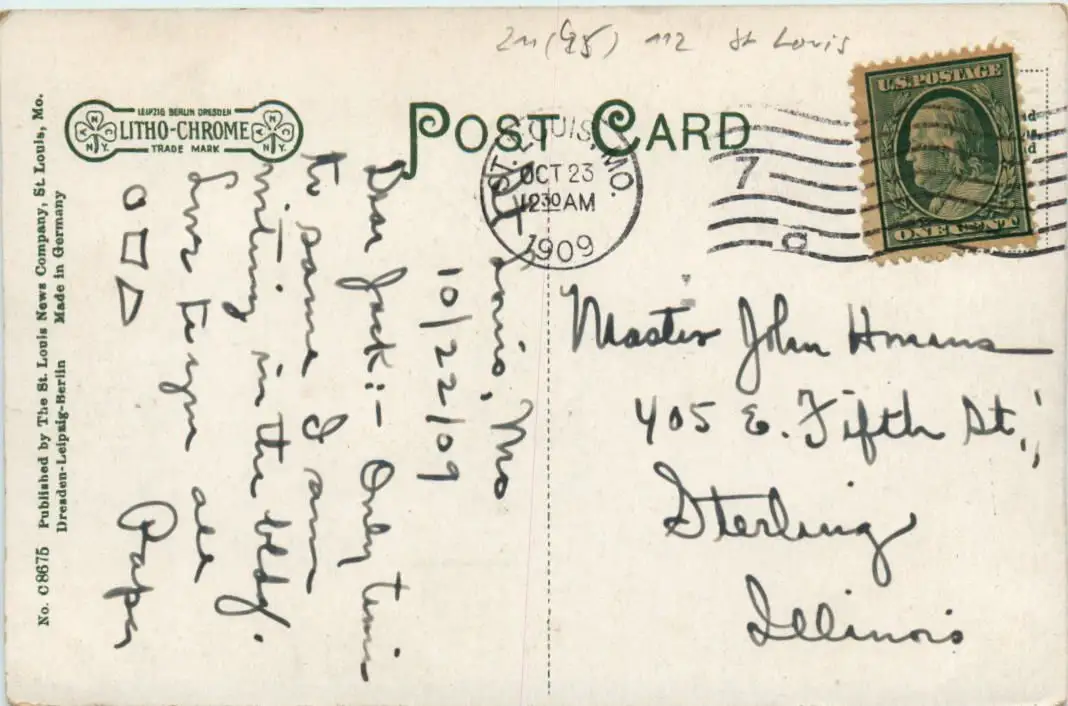 St Louis
LEIPZIG BERLIN DRESDEN
LITHO-CHROME
TRADE MARK
N A C N.Y.
N A C N.Y.
POST CARD
ST. LOUIS, MO.
OCT 23
12 30 AM
1909
7
U.S. POSTAGE
ONE CENT
St Louis, Mo
10/22/09
Dear Jack:- Only time
to same I am
writing in the bldg.
Love to you all
Papa
○ □ △
Master John Homans
405 E. Fifth St.,
Sterling
Illinois
No. C 8675 Published by The St. Louis News Company, St. Louis, Mo.
Dresden-Leipzig-Berlin Made in Germany